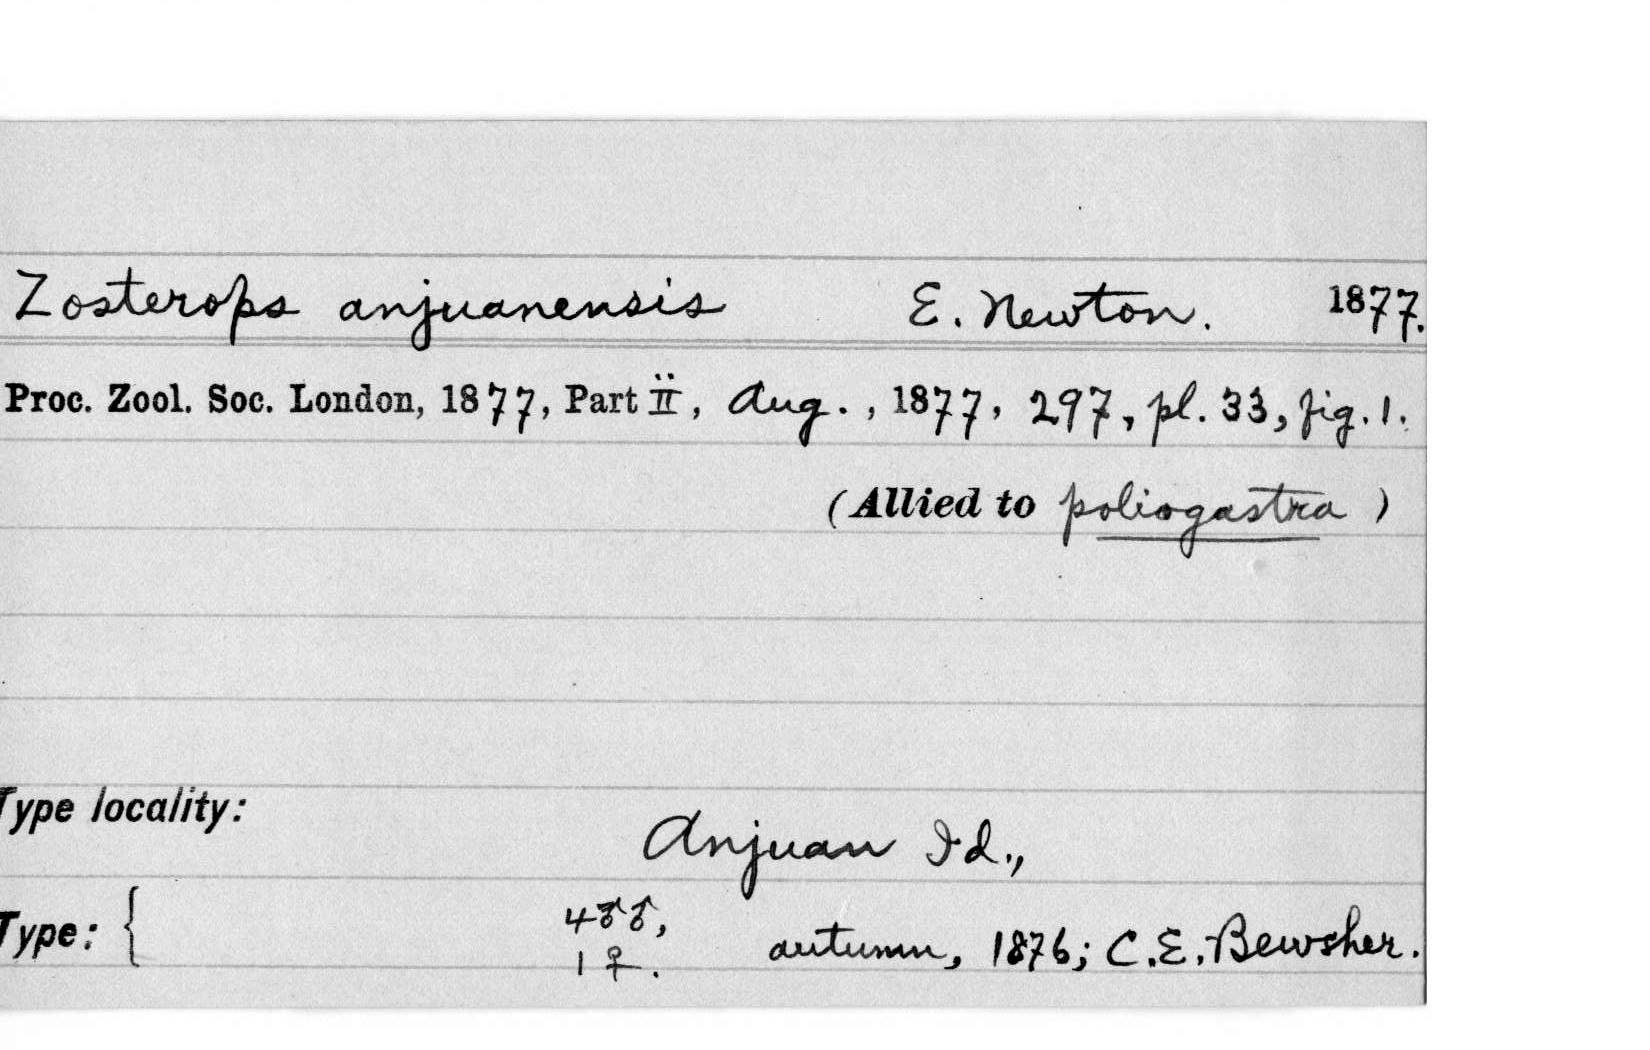 Zosterops anjuanensis E. Newton. 1877.
Proc. Zool. Soc. London, 1877, Part ii, Aug., 1877, 297, pl. 33, fig. 1.
(Allied to poliogastra)
Type locality:
Anjuan Id.,
4♂♂,
Type: { autumn, 1876; C.E. Bewsher.
1♀.